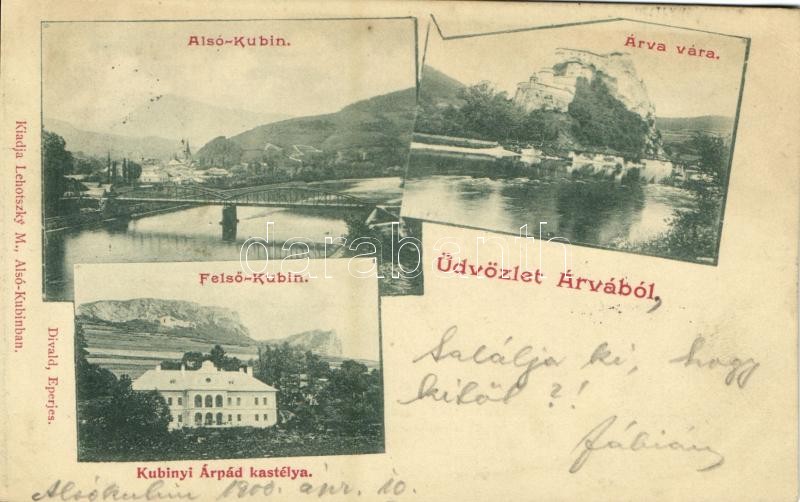 Alsó-Kubin.
Árva vára.
Üdvözlet Árvából,
Felső-Kubin.
Kubinyi Árpád kastélya.
Kiadja Lehotszky M., Alsó-Kubinban.
Divald, Eperjes.
Találja ki, hogy
kitől ?!
Fábián
Alsókubin 1900. ápr. 10.
darabanth.com